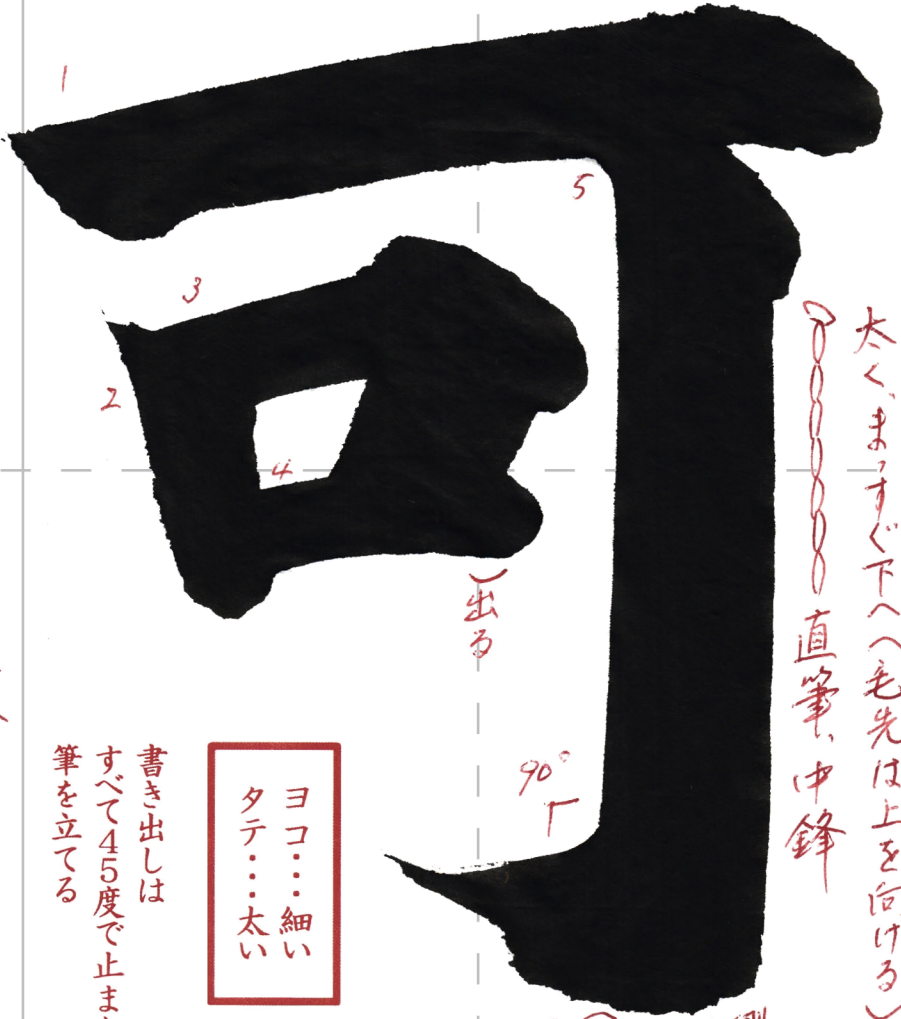 可
1
2
3
4
5
太く、まっすぐ下へ(毛先は上を向ける)
直筆、中鋒
出る
90°
ヨコ・・・細い
タテ・・・・太い
書き出しは
すべて45度で止ま
筆を立てる